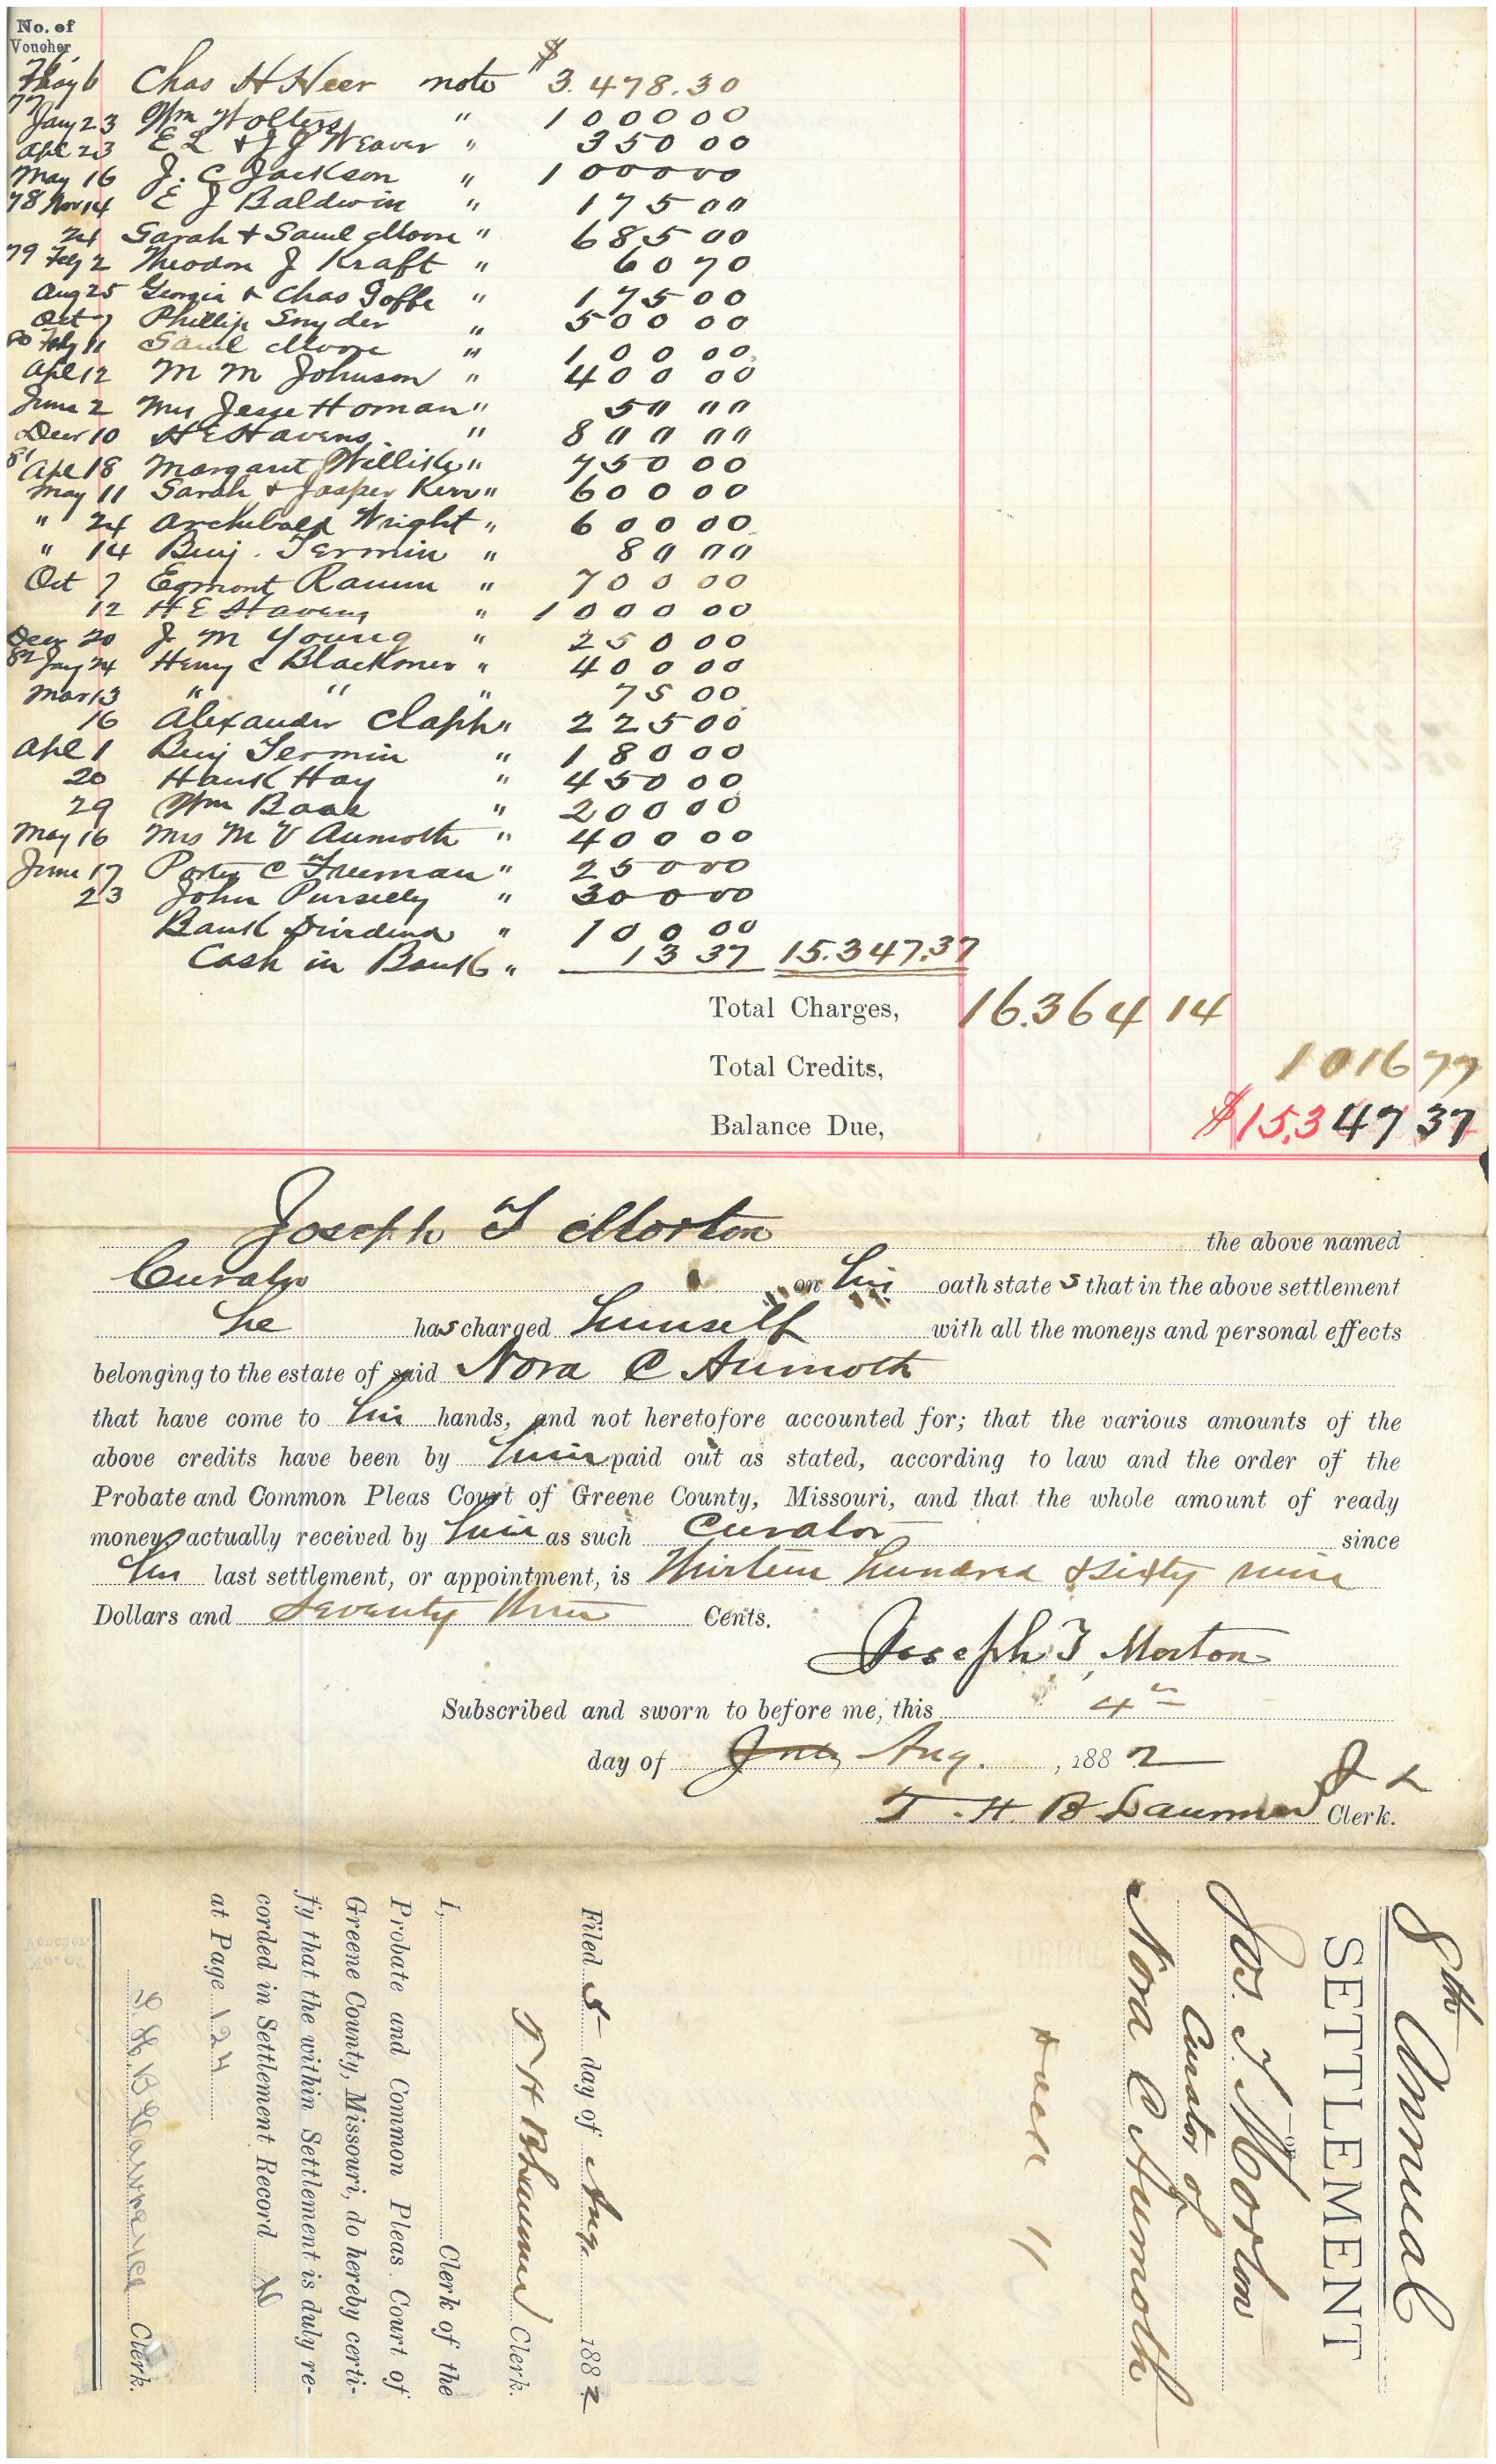 No. of
Voucher
76
May 6 Chas H Heer note $ 3.478.30
77
Jany 23 Wm Wolters " 1000 00
Apl 23 E L & J J Weaver " 350 00
May 16 J. C Jackson " 1000 00
78 Nov 14 E J Baldwin " 175 00
21 Sarah & Saml Moore " 685 00
79 Feby 2 Theodore J Kraft " 60 70
Aug 25 Georgia & Chas Goffe " 175 00
Oct 7 Phillip Snyder " 500 00
80 Feby 11 Saml Moore " 100 00
Apl 12 M M Johnson " 400 00
June 2 Mrs Jesse Homan " 50 00
Decr 10 H E Havens " 800 00
81
Apl 18 Margaret Willike " 750 00
May 11 Sarah & Jasper Kerr " 600 00
" 24 Archibald Wright " 600 00
" 14 Benj. Termin " 80 00
Oct 7 Egmont Raum " 700 00
12 H E Havens " 1000 00
Decr 20 J M Young " 250 00
82 Jany 24 Henry C Blackmer " 400 00
Mar 13 " " " 75 00
16 Alexander Claph " 225 00
Apl 1 Benj Termin " 180 00
20 Hank Hay " 450 00
29 Wm Baak " 200 00
May 16 Mrs M V Aumoth " 400 00
June 17 Porter C Freeman " 250 00
23 John Purselly " 300 00
Bank Dividend " 100 00
Cash in Bank " 13 37 15.347.37
Total Charges, 16.364 14
Total Credits, 1016 77
Balance Due, $15.347 37
Joseph T Morton the above named
Curator on his oath states that in the above settlement
he has charged himself with all the moneys and personal effects
belonging to the estate of said Nora C Aumoth
that have come to his hands, and not heretofore accounted for; that the various amounts of the
above credits have been by him paid out as stated, according to law and the order of the
Probate and Common Pleas Court of Greene County, Missouri, and that the whole amount of ready
money actually received by him as such Curator since
his last settlement, or appointment, is Thirteen hundred & sixty nine
Dollars and Seventy three Cents.
Joseph T, Morton
Subscribed and sworn to before me, this 4th
day of July Aug. , 1882
T. H. B Laurence Clerk.
8th Annual
SETTLEMENT
OF
Jos. T. Morton
Curator of
Nora C Aumoth
Filed 5 day of Aug. 1882
T H B Laurence Clerk.
I, Clerk of the
Probate and Common Pleas Court of
Greene County, Missouri, do hereby certi-
fy that the within Settlement is duly re-
corded in Settlement Record N
at Page 124
T. H. B Lawrence Clerk.